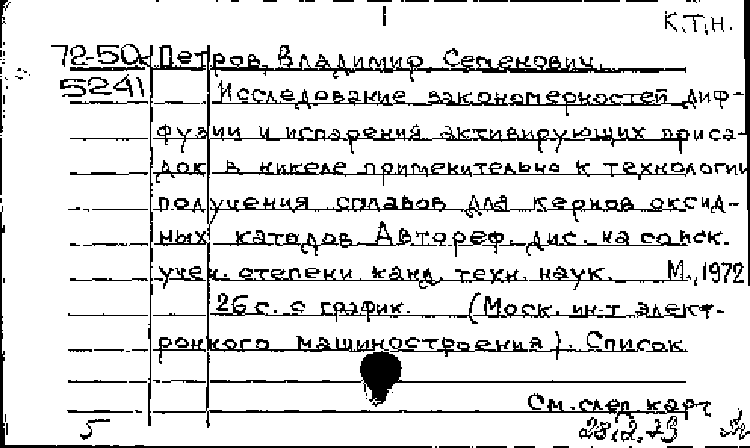 К.Т.Н.
72-50к Петров, Владимир Семенович.
5241 Исследование закономерностей диф-
фузии и испарения активирующих приса-
док в никеле применительно к технологии
получения сплавов для кернов оксид-
ных катодов. Автореф. дис. на соиск.
учен. степени канд. техн. наук. М., 1972
26 с. с график. (Моск. ин-т элект-
ронного машиностроения). Список
См. след. карт
5 28.2.73